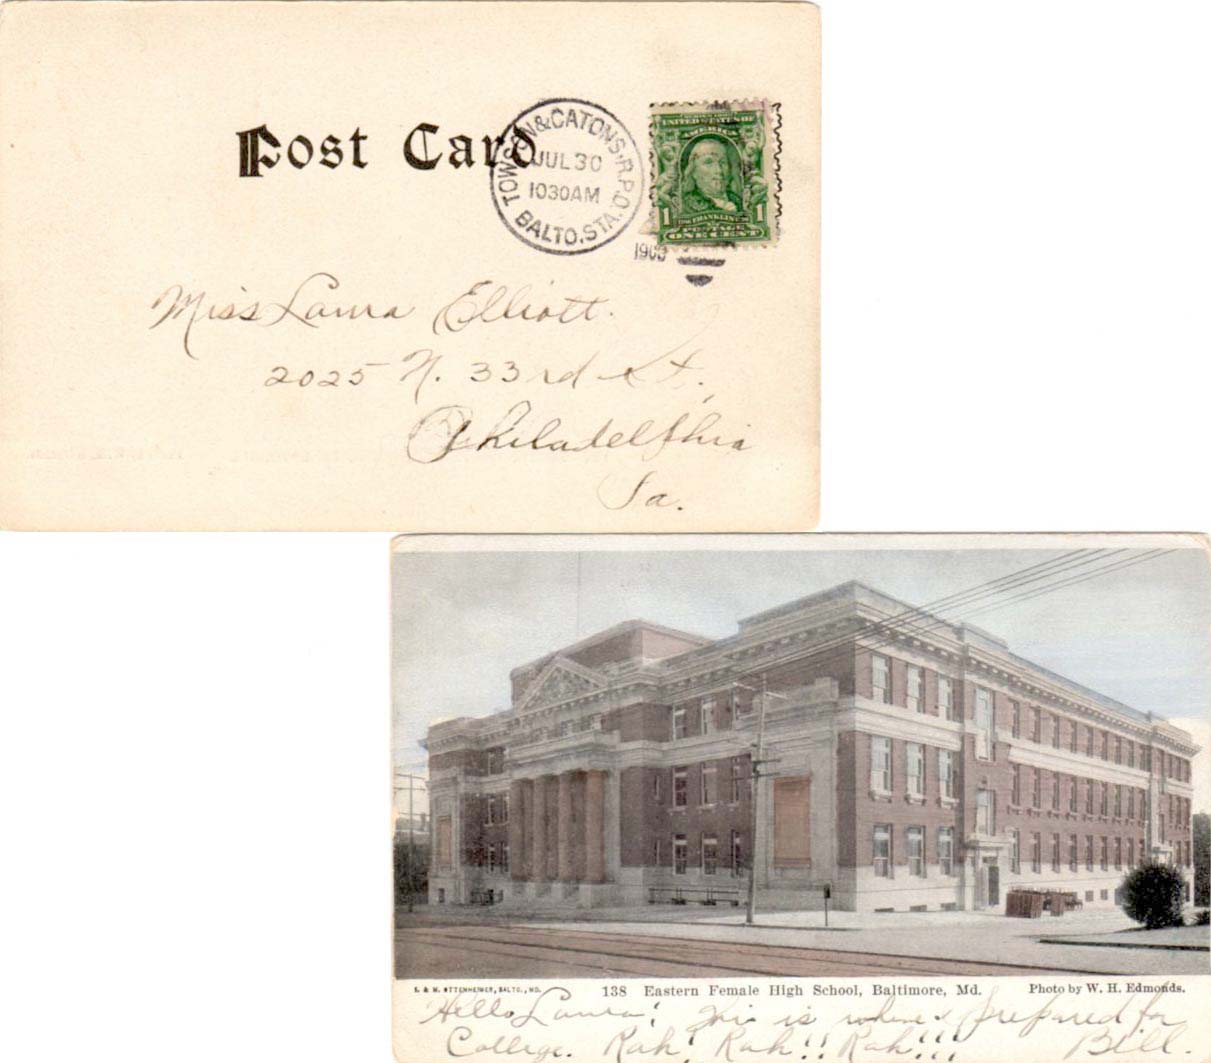 Post Card
TOWSON & CATONS. R.P.O.
JUL 30
1030AM
BALTO. STA.
SERIES 1902
UNITED STATES OF
AMERICA
1 FRANKLIN 1
POSTAGE
ONE CENT
Miss Laura Elliott.
2025 N. 33rd St.,
Philadelphia
Pa.
L & M. OTTENHEIMER, BALTO., MD.
138 Eastern Female High School, Baltimore, Md.
Photo by W. H. Edmonds.
Hello Laura! This is where I prepared for
College. Rah! Rah!! Rah!!! Bill.